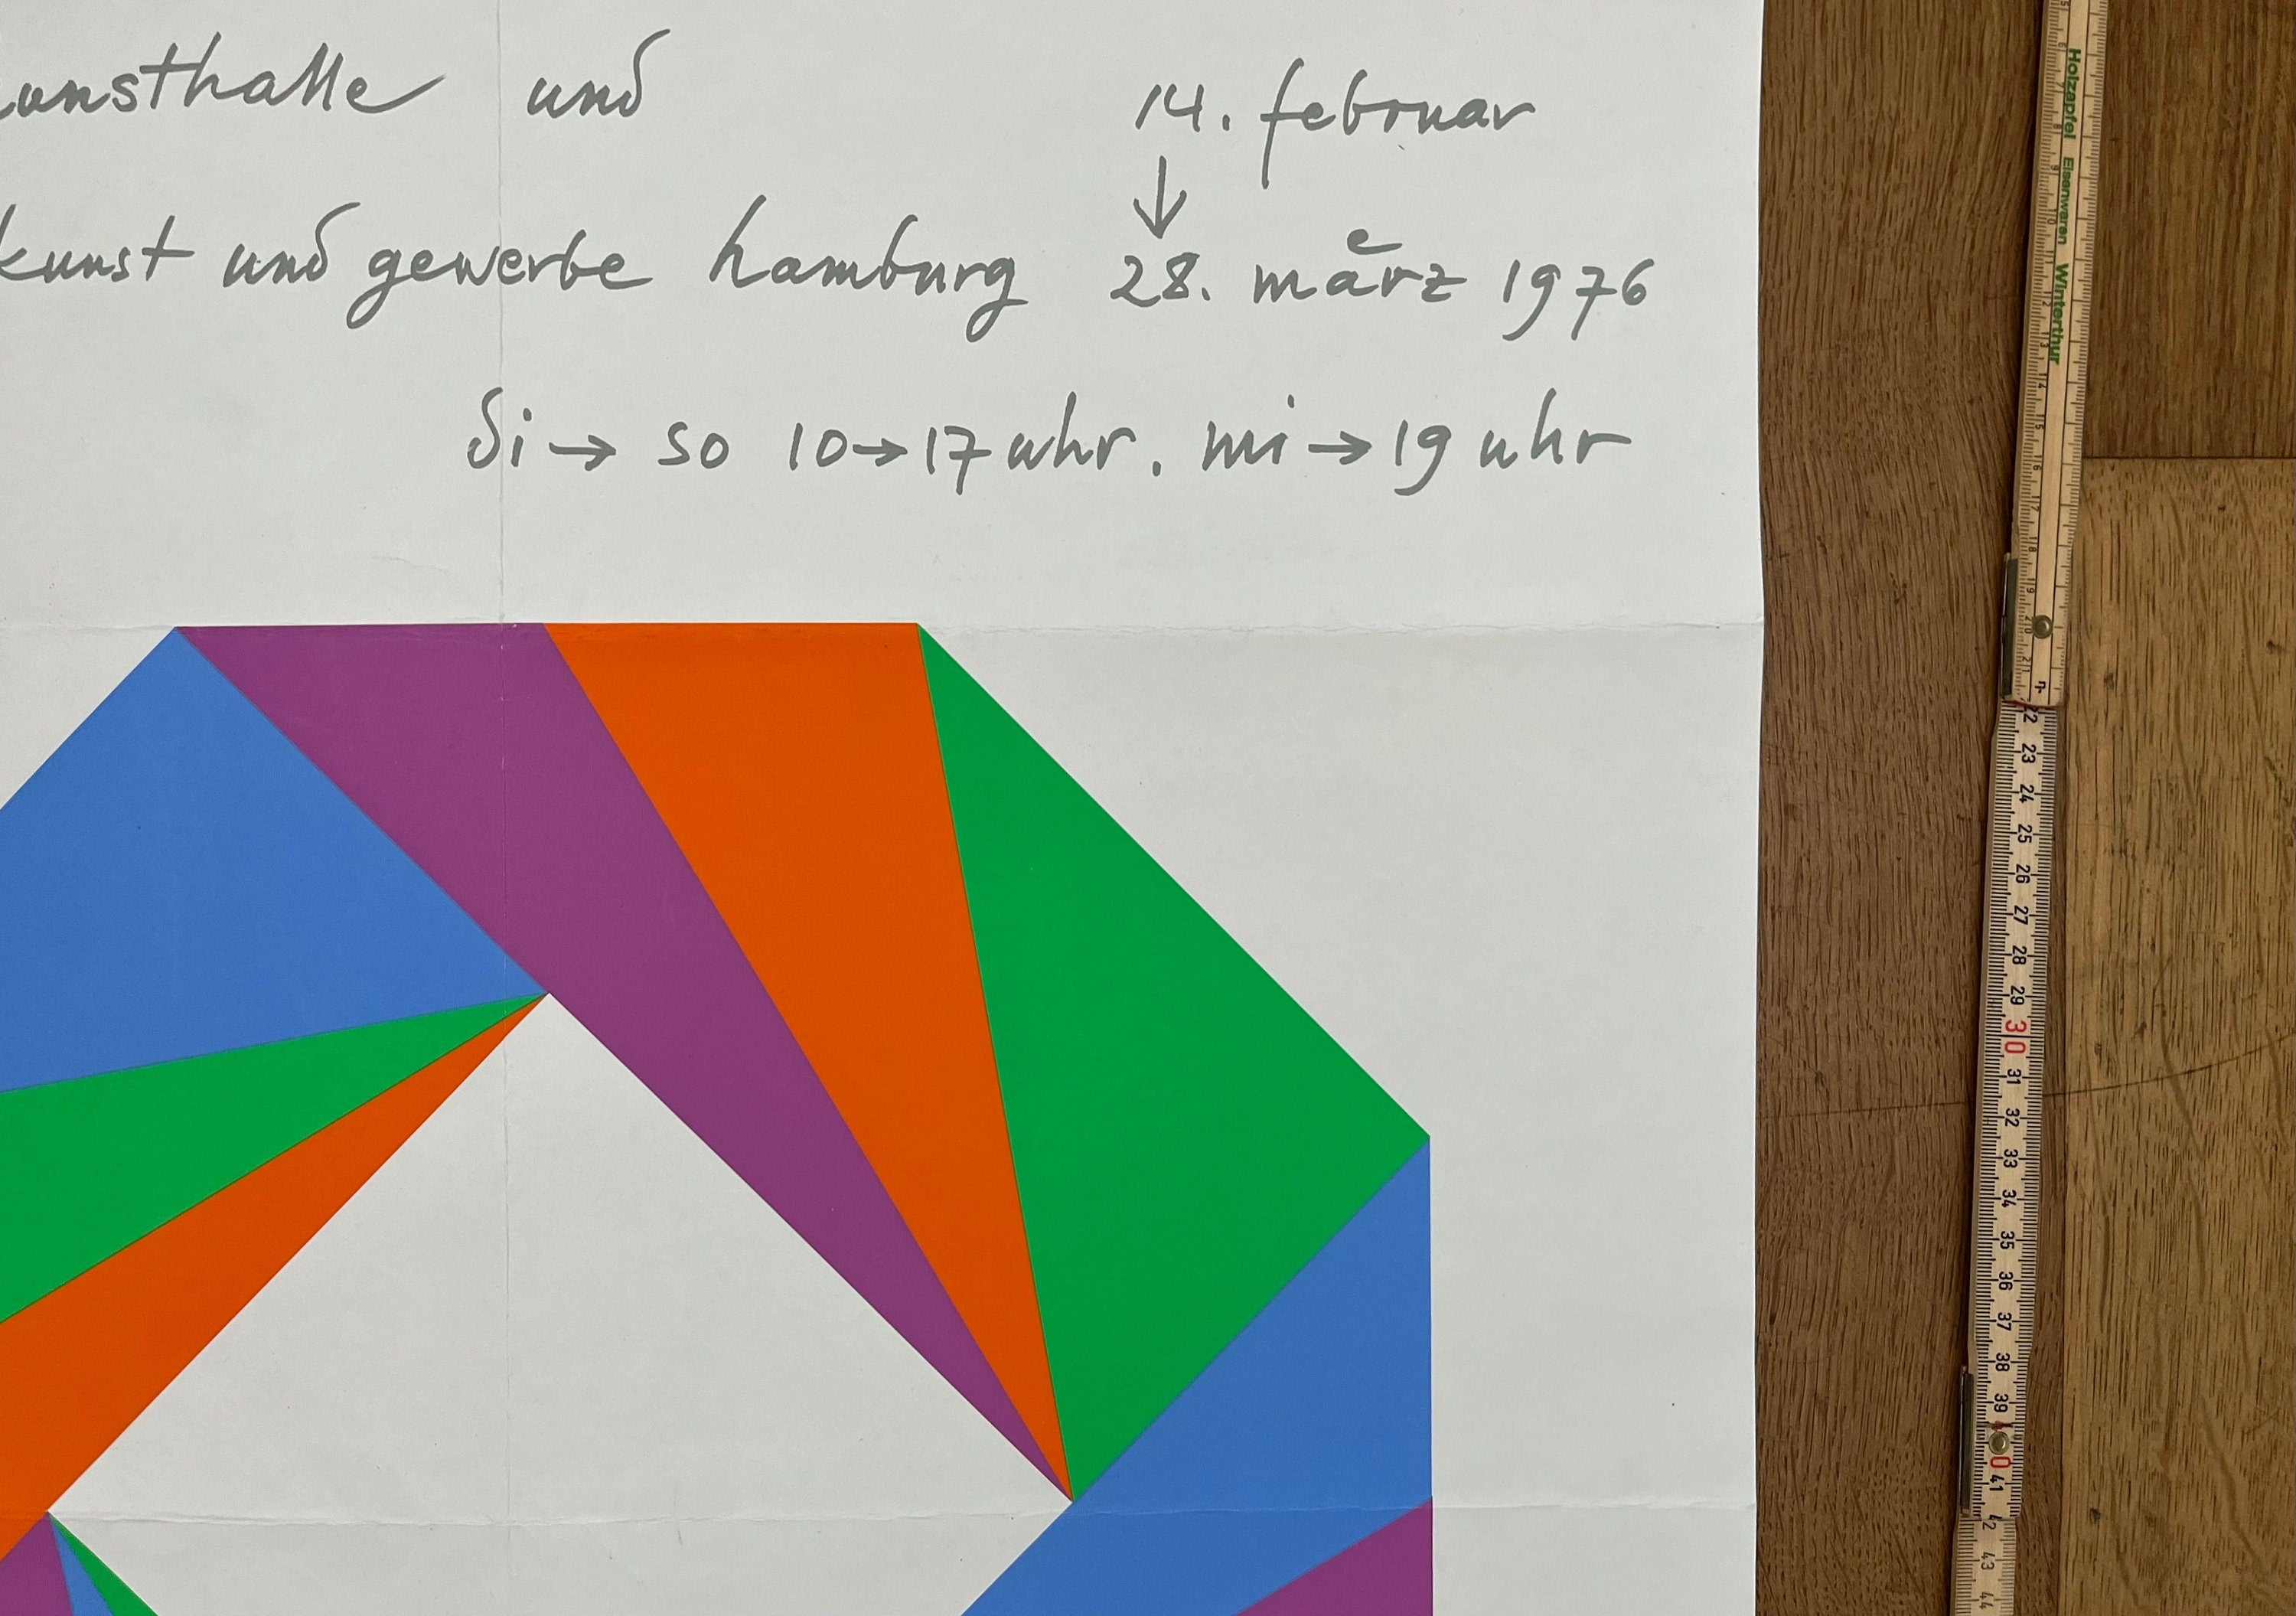 kunsthalle und
14. februar
↓
kunst und gewerbe hamburg 28. maͤrz 1976
di → so 10 → 17 uhr. mi → 19 uhr
Holzapfel Eisenwaren Winterthur
6 7 8 9 10 11 12 13 14 15 16 17 18 19 20 21
22 23 24 25 26 27 28 29 30 31 32 33 34 35 36 37 38 39 40 41 42 43 44